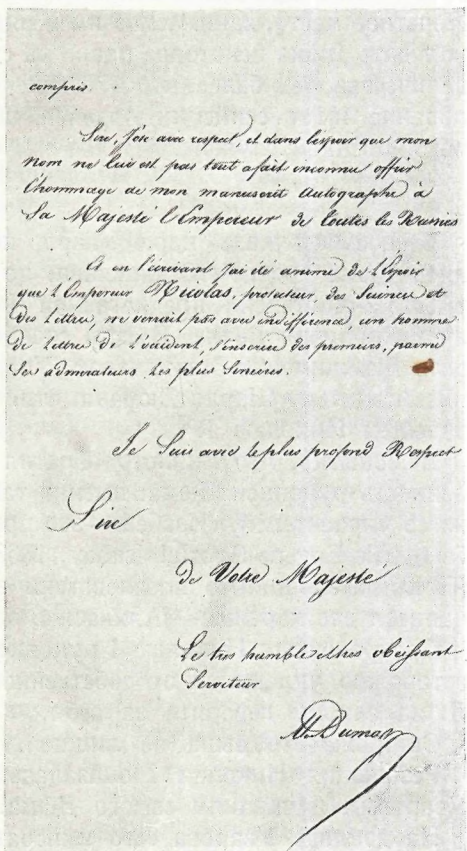 compris.
Sire, J'ose avec respect, et dans l'espoir que mon
nom ne lui est pas tout a fait inconnu offrir
l'hommage de mon manuscrit autographe à
Sa Majesté l'Empereur de toutes les Russies
Et en l'écrivant J'ai été animé de l'Espoir
que l'Empereur Nicolas, protecteur, des Sciences et
des Lettres, ne verrait pas avec indifférence, un homme
de lettres de l'occident, s'inscrire des premiers, parmi
Ses admirateurs les plus Sincères.
Je Suis avec le plus profond Respect
Sire
de Votre Majesté
Le tres humble et tres obeissant
Serviteur
Al. Dumas